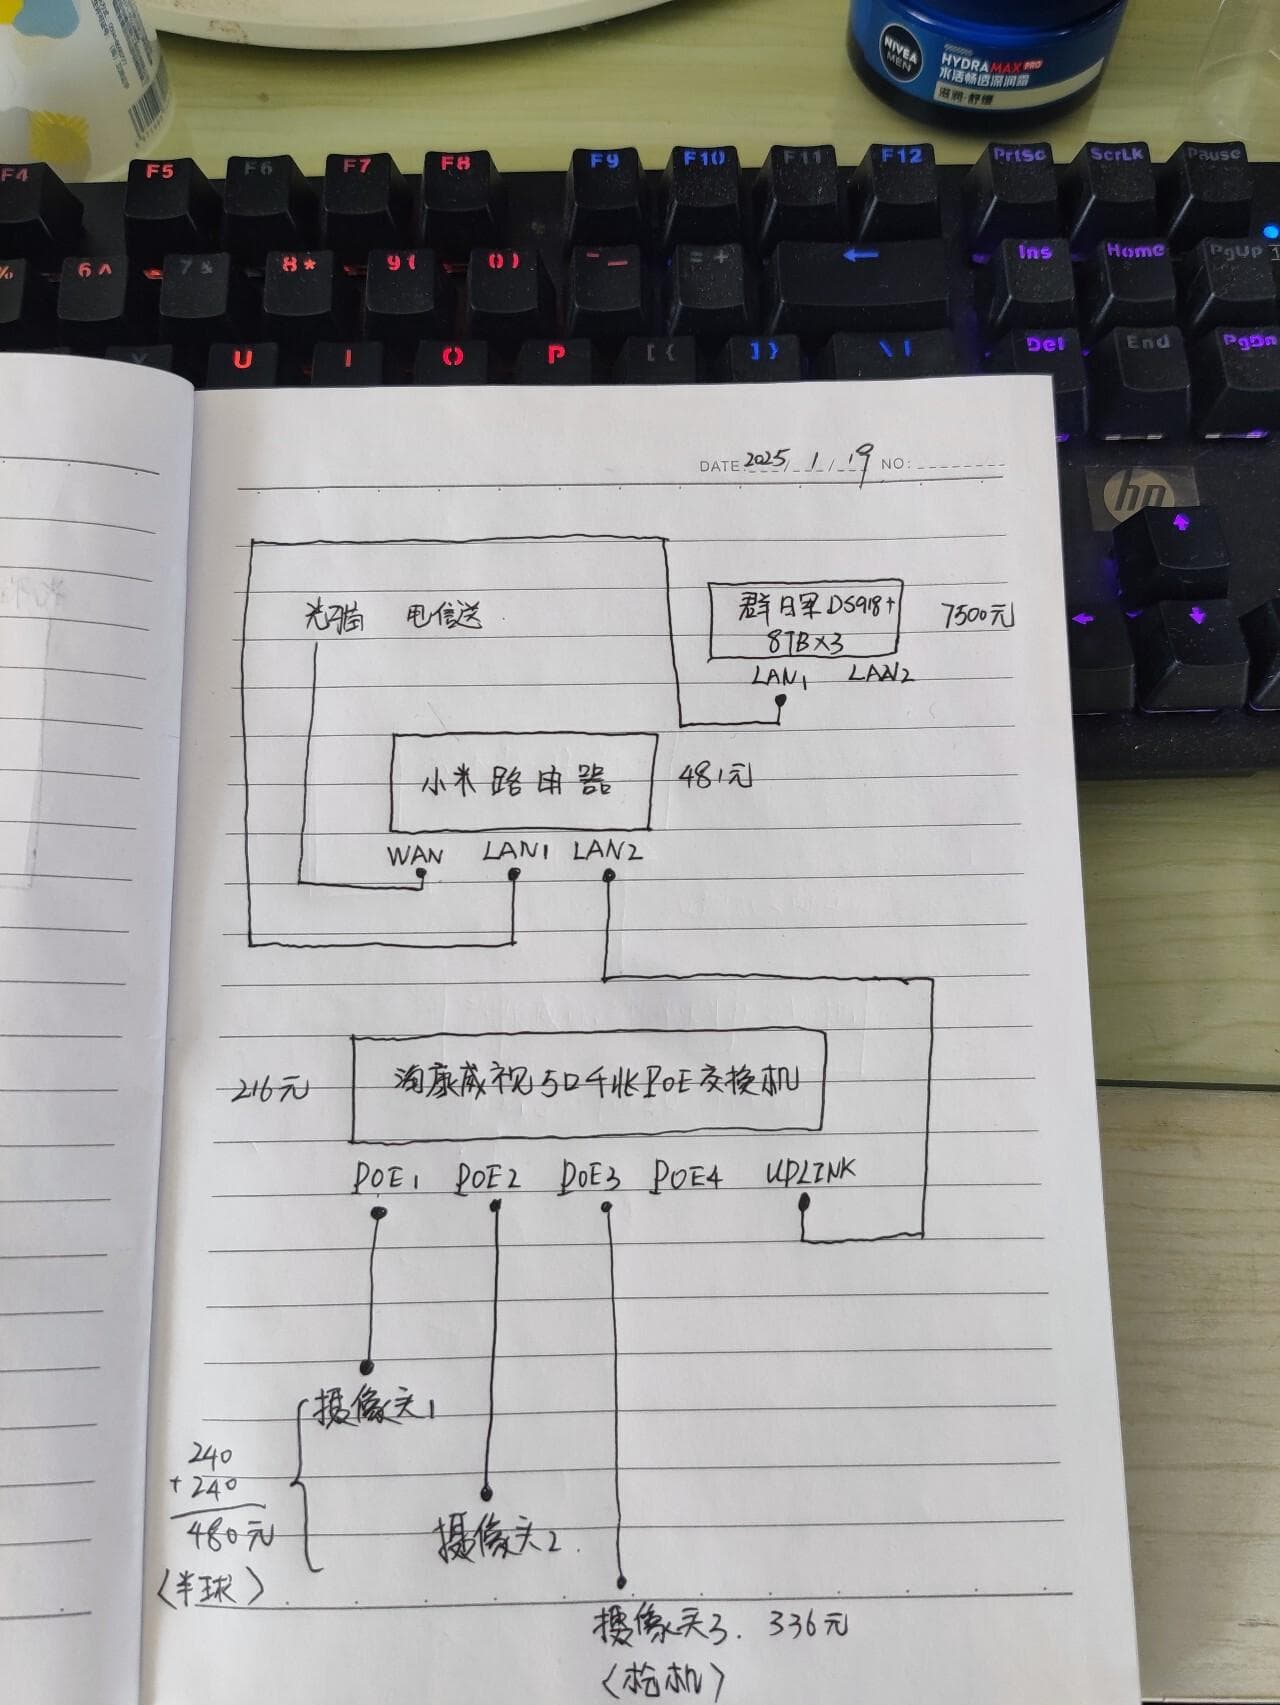 NIVEA
MEN
HYDRAMAX PRO
水活畅透深润霜
滋润·舒缓
F4 F5 F6 F7 F8 F9 F10 F11 F12 PrtSc ScrLk Pause
% 6 ^ 7 & 8 * 9 ( 0 ) - _ = + ← Ins Home PgUp
Y U I O P [ { ] } \ | Del End PgDn
hp
↑
← ↓
DATE 2025 / 1 / 19 NO:
光猫 电信送
群日军DS918+
8TB×3
7500元
LAN1 LAN2
小米路由器
481元
WAN LAN1 LAN2
216元
海康威视5口千兆POE交换机
POE1 POE2 POE3 POE4 UPLINK
摄像头1
240
+ 240
480元
(半球)
摄像头2.
摄像头3. 336元
(枪机)